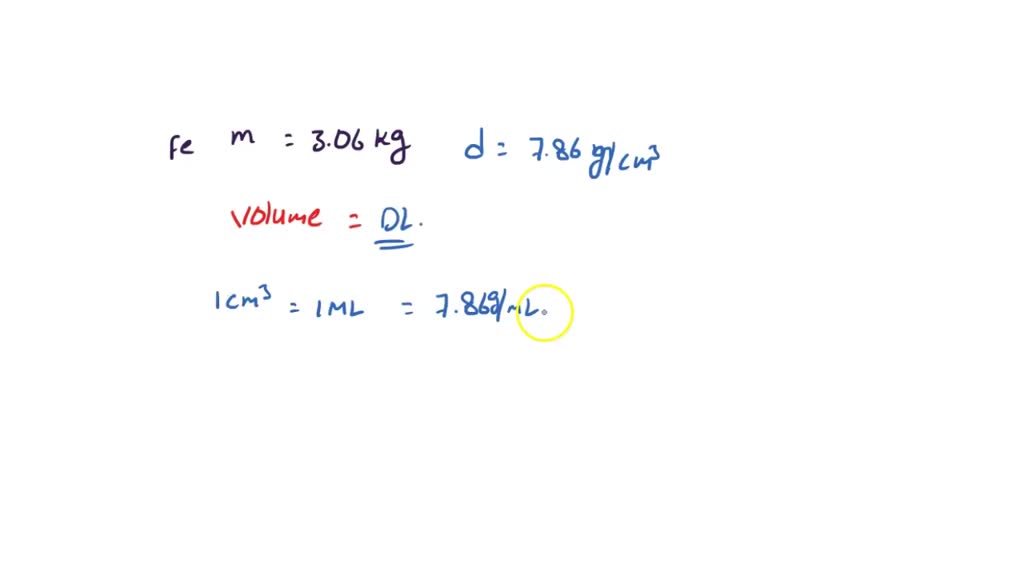 Fe m = 3.06 kg d = 7.86 g/cm³
Volume = DL.
1cm³ = 1ML = 7.86g/mL.